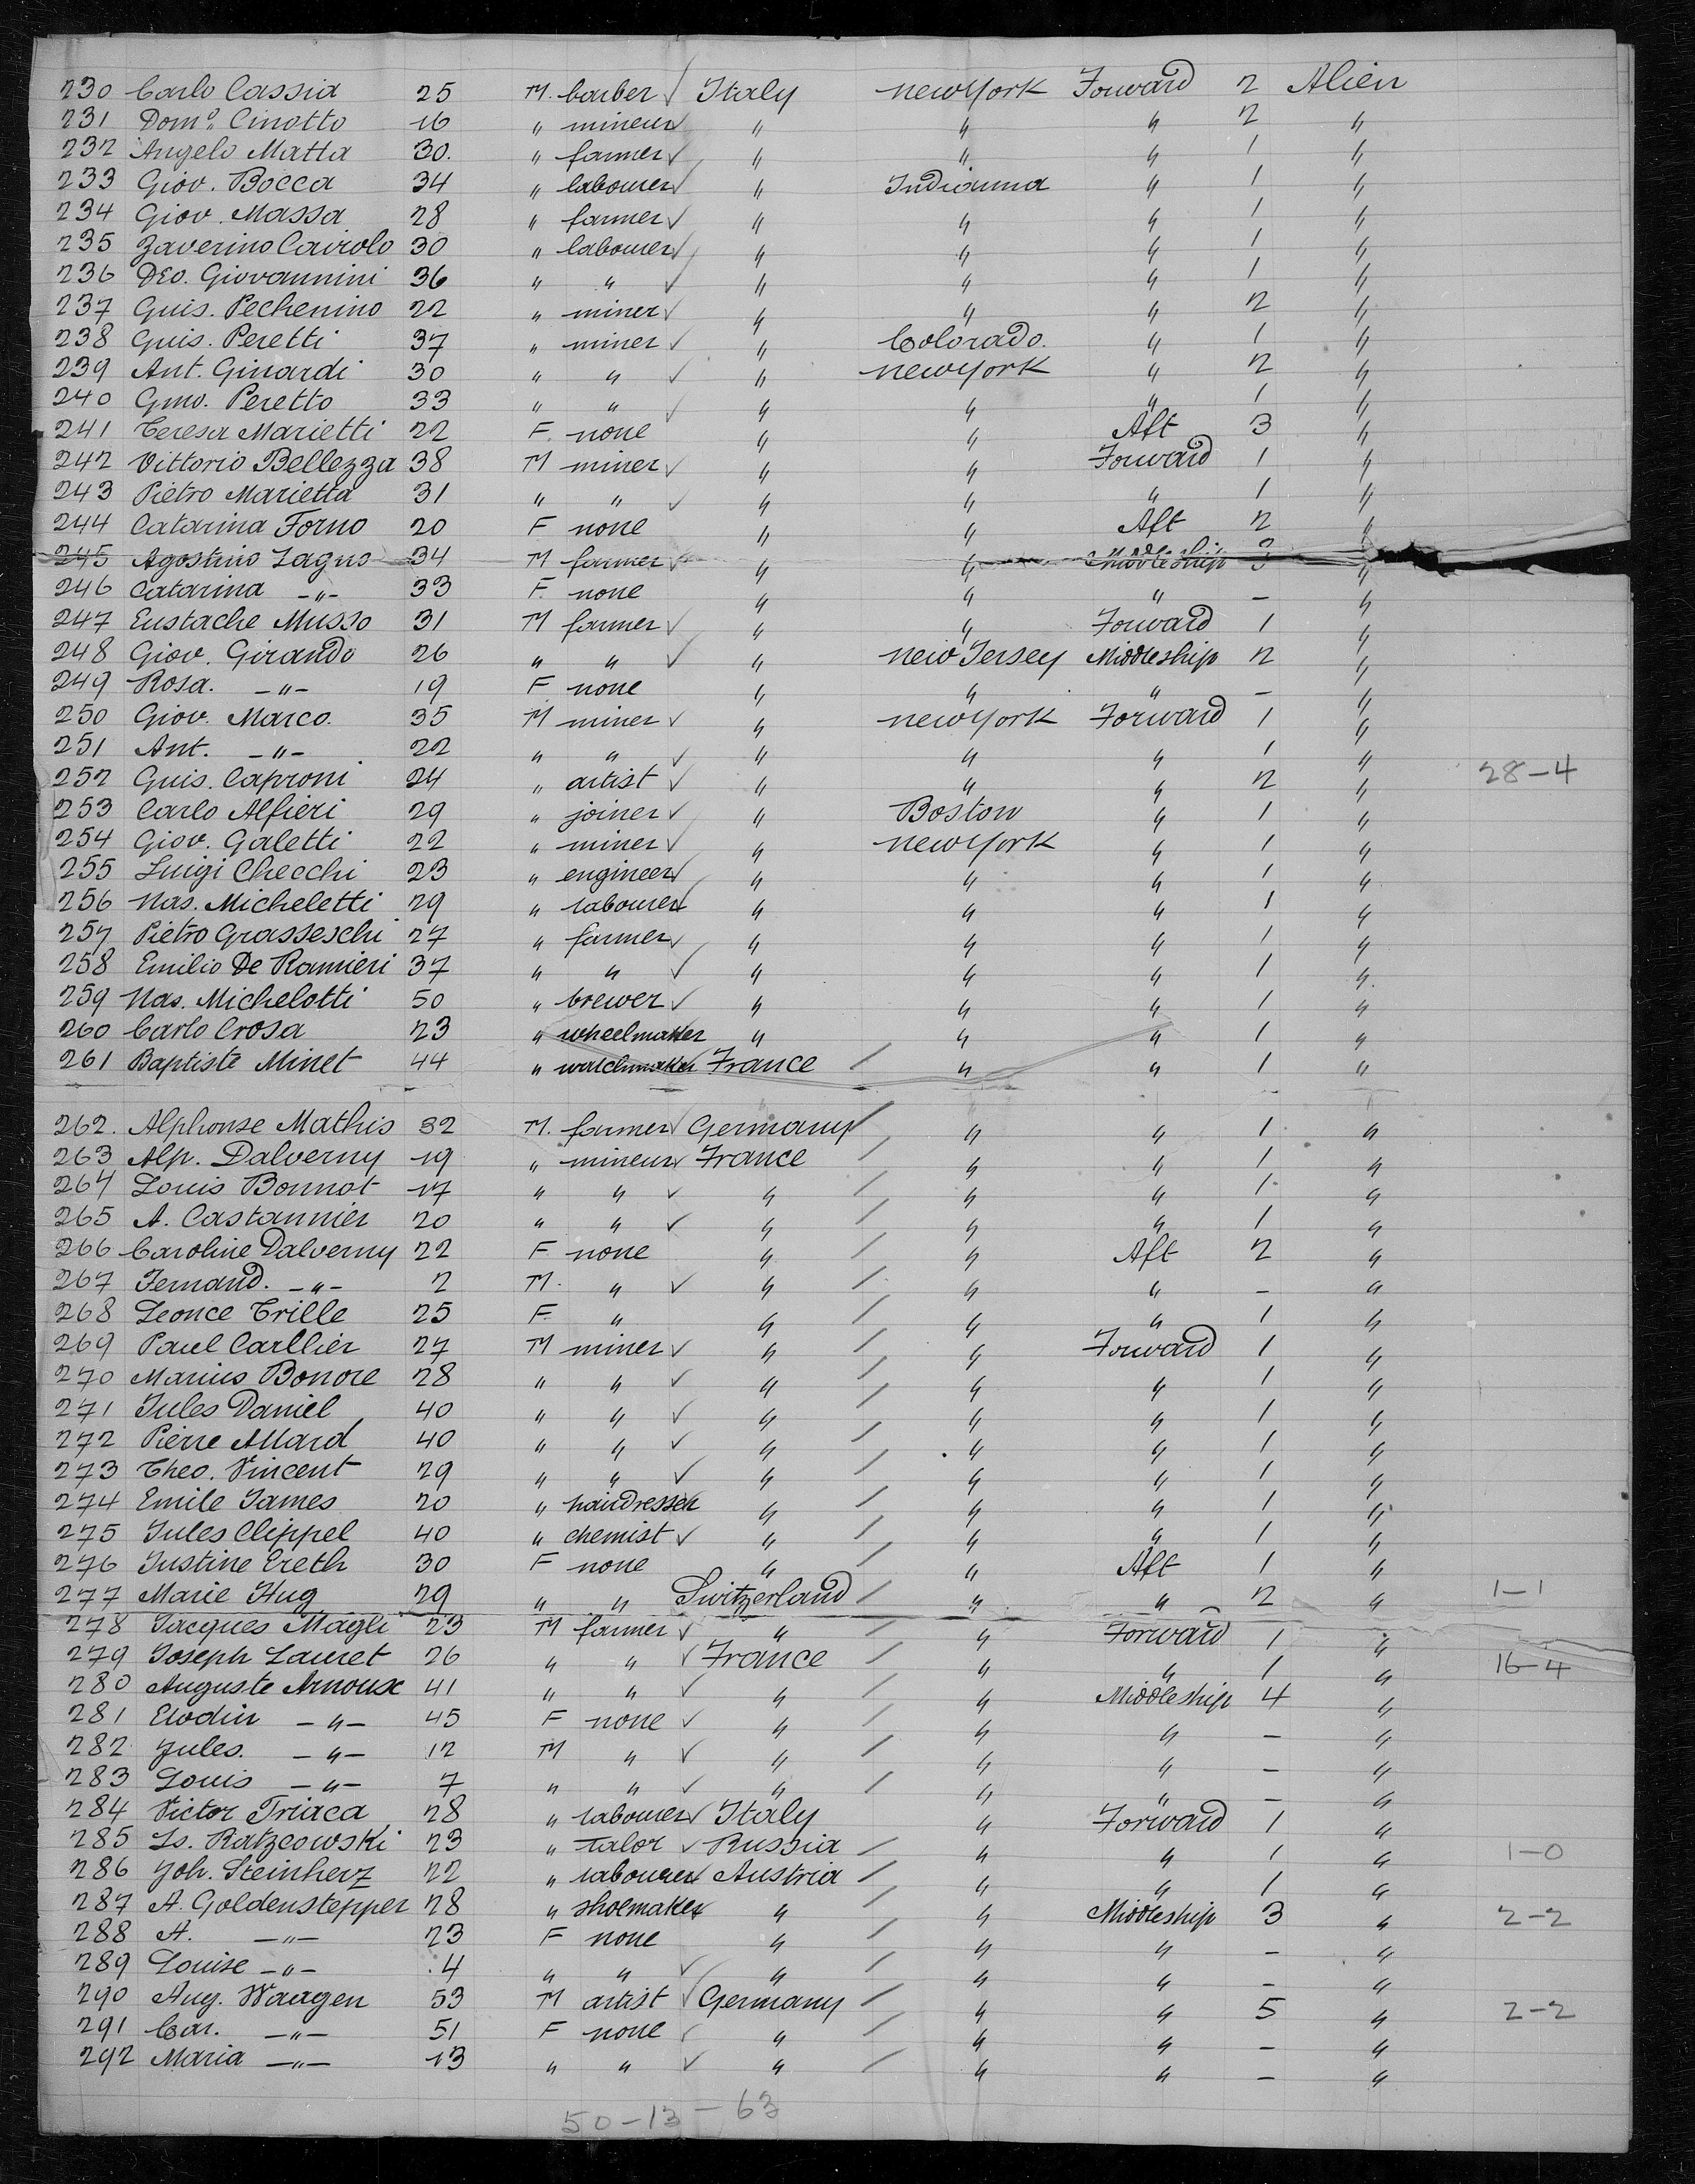 230 Carlo Cassia 25 M. barber ✓ Italy newyork Forward 2 Alien
231 Domº Cinotto 16 " mineur ✓ " " " 2 "
232 Angelo Matta 30. " farmer ✓ " " " 1 "
233 Giov. Bocca 34 " labourer ✓ " Indianna " 1 "
234 Giov. Massa 28 " farmer ✓ " " " 1 "
235 Zaverino Cairolo 30 " labourer ✓ " " " 1 "
236 Deo. Giovannini 36 " " ✓ " " " 1 "
237 Guis. Pechenino 22 " miner ✓ " " " 2 "
238 Guis. Peretti 37 " miner ✓ " Colorado. " 1 "
239 Ant. Ginardi 30 " " ✓ " newyork " 2 "
240 Gmo. Peretto 33 " " ✓ " " " 1 "
241 Teresa Marietti 22 F. none " " Aft 3 "
242 Vittorio Bellezza 38 M miner ✓ " " Forward 1 "
243 Pietro Marietta 31 " " ✓ " " " 1 "
244 Catarina Forno 20 F none " " Aft 2 "
245 Agostino Lagno 34 M farmer ✓ " " Middleship 3 "
246 Catarina -"- 33 F. none " " " - "
247 Eustache Musso 31 M farmer ✓ " " Forward 1 "
248 Giov. Girando 26 " " ✓ " new Jersey Middleship 2 "
249 Rosa. -"- 19 F none " " " - "
250 Giov. Marco. 35 M miner ✓ " newyork Forward 1 "
251 Ant. -"- 22 " " ✓ " " " 1 "
252 Guis. Caproni 24 " artist ✓ " " " 2 " 28-4
253 Carlo Alfieri 29 " joiner ✓ " Boston " 1 "
254 Giov. Galetti 22 " miner ✓ " newyork " 1 "
255 Luigi Checchi 23 " engineer ✓ " " " 1 "
256 Nas. Micheletti 29 " labourer ✓ " " " 1 "
257 Pietro Grasseschi 27 " farmer ✓ " " " 1 "
258 Emilio De Ramieri 37 " " ✓ " " " 1 "
259 Nas. Michelotti 50 " brewer ✓ " " " 1 "
260 Carlo Crosa 23 " wheelmaker " " " 1 "
261 Baptiste Minet 44 " watchmaker France / " " 1 "
262. Alphonse Mathis 32 M. farmer ✓ Germany / " " 1 "
263 Alp. Dalverny 19 " mineur ✓ France / " " 1 "
264 Louis Bonnot 17 " " ✓ " / " " 1 "
265 A. Castannier 20 " " ✓ " / " " 1 "
266 Caroline Dalverny 22 F none " / " Aft 2 "
267 Fernand. -"- 2 M. " ✓ " / " " - "
268 Leonce Trille 25 F. " " / " " 1 "
269 Paul Carllier 27 M miner ✓ " / " Forward 1 "
270 Marius Bonore 28 " " ✓ " / " " 1 "
271 Jules Daniel 40 " " ✓ " / " " 1 "
272 Pierre Allard 40 " " ✓ " / " " 1 "
273 Theo. Vincent 29 " " ✓ " / " " 1 "
274 Emile James 20 " hairdresser " / " " 1 "
275 Jules Clippel 40 " chemist ✓ " / " " 1 "
276 Justine Ereth 30 F none " / " Aft 1 "
277 Marie Hug 29 " " Switzerland / " " 2 " 1-1
278 Jacques Magli 23 M farmer ✓ " / " Forward 1 "
279 Joseph Lauret 26 " " ✓ France / " " 1 " 16-4
280 Auguste Arnoux 41 " " ✓ " / " Middleship 4 "
281 Elodin -"- 45 F none ✓ " / " " - "
282 Jules. -"- 12 M " ✓ " / " " - "
283 Louis -"- 7 " " ✓ " / " " - "
284 Victor Triaca 28 " labourer ✓ Italy " Forward 1 "
285 Ls. Ratzcowski 23 " Talor ✓ Russia / " " 1 " 1-0
286 Joh. Steinherz 22 " labourer ✓ Austria / " " 1 "
287 A. Goldenstepper 28 " shoemaker ✓ " / " Middleship 3 " 2-2
288 A. -"- 23 F none " / " " - "
289 Louise -"- 4 " " ✓ " / " " - "
290 Aug. Waagen 53 M artist ✓ Germany / " " 5 " 2-2
291 Car. -"- 51 F none ✓ " / " " - "
292 Maria -"- 13 " " ✓ " / " " - "
50-13-63